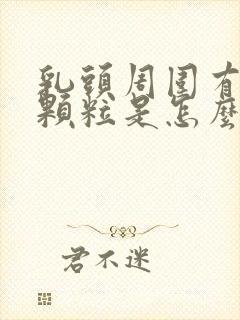 乳頭周围有
顆粒是怎麼
君不迷